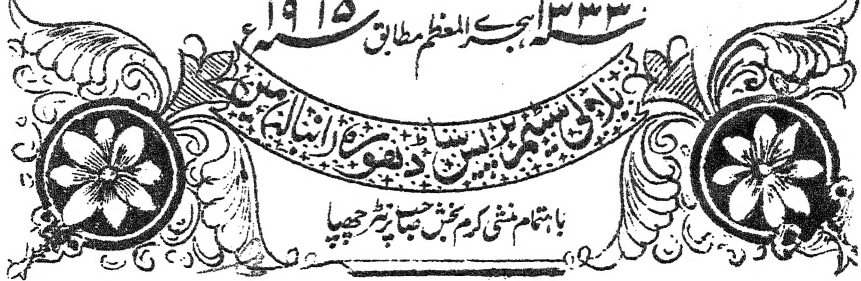 سنہ ۱۳۳۳ ہجرے المعظم مطابق سنہ ۱۹۱۵ء
بلالی سٹیم پریس ساڈھورہ (انبالہ) میں
باہتمام منشی کرم بخش صاحب پرنٹر چھپا